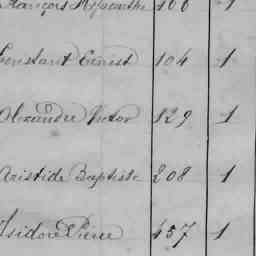 François Hyacinthe 106 1
Constant Ernest 104 1
Alexandre Victor 129 1
Aristide Baptiste 208 1
Isidore Pierre 457 1